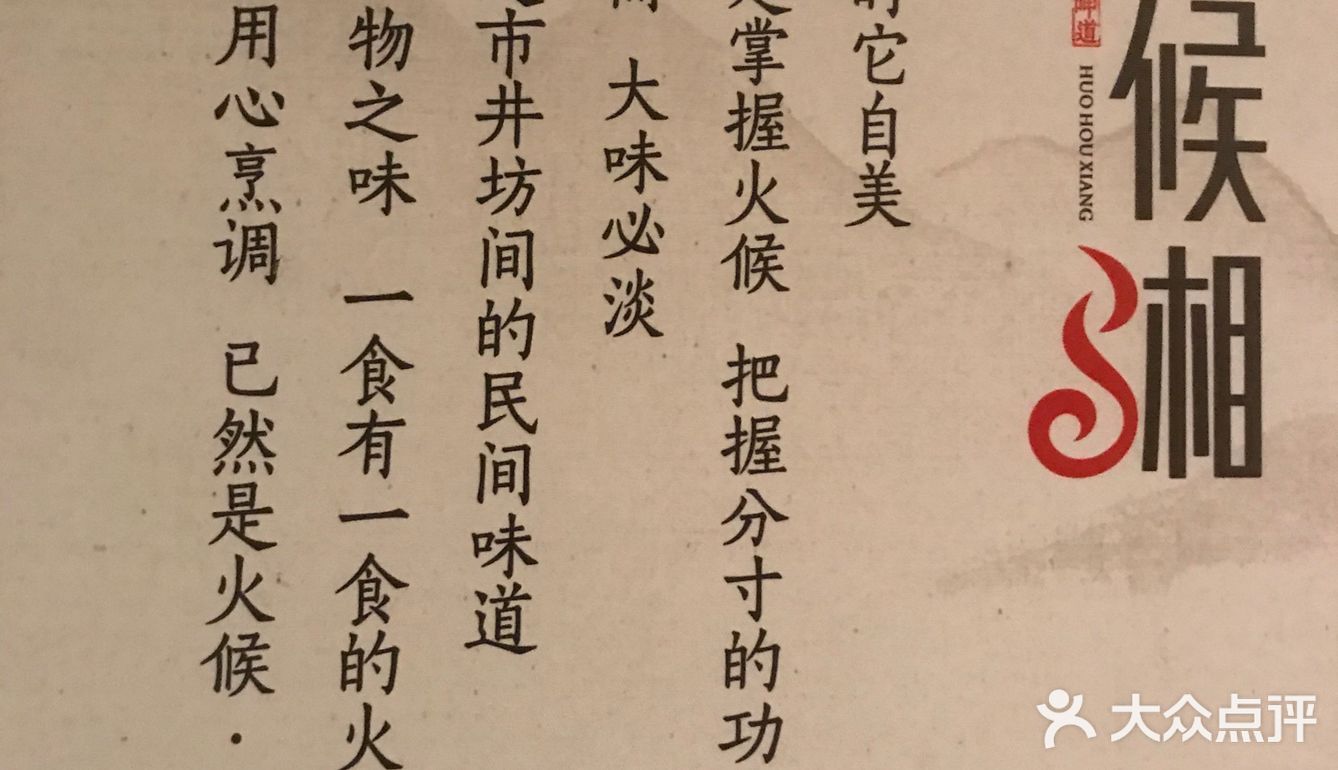 候湘
HUO HOU XIANG
它自美
掌握火候 把握分寸的功
大味必淡
市井坊间的民间味道
物之味 一食有一食的火
用心烹调 已然是火候·
大众点评